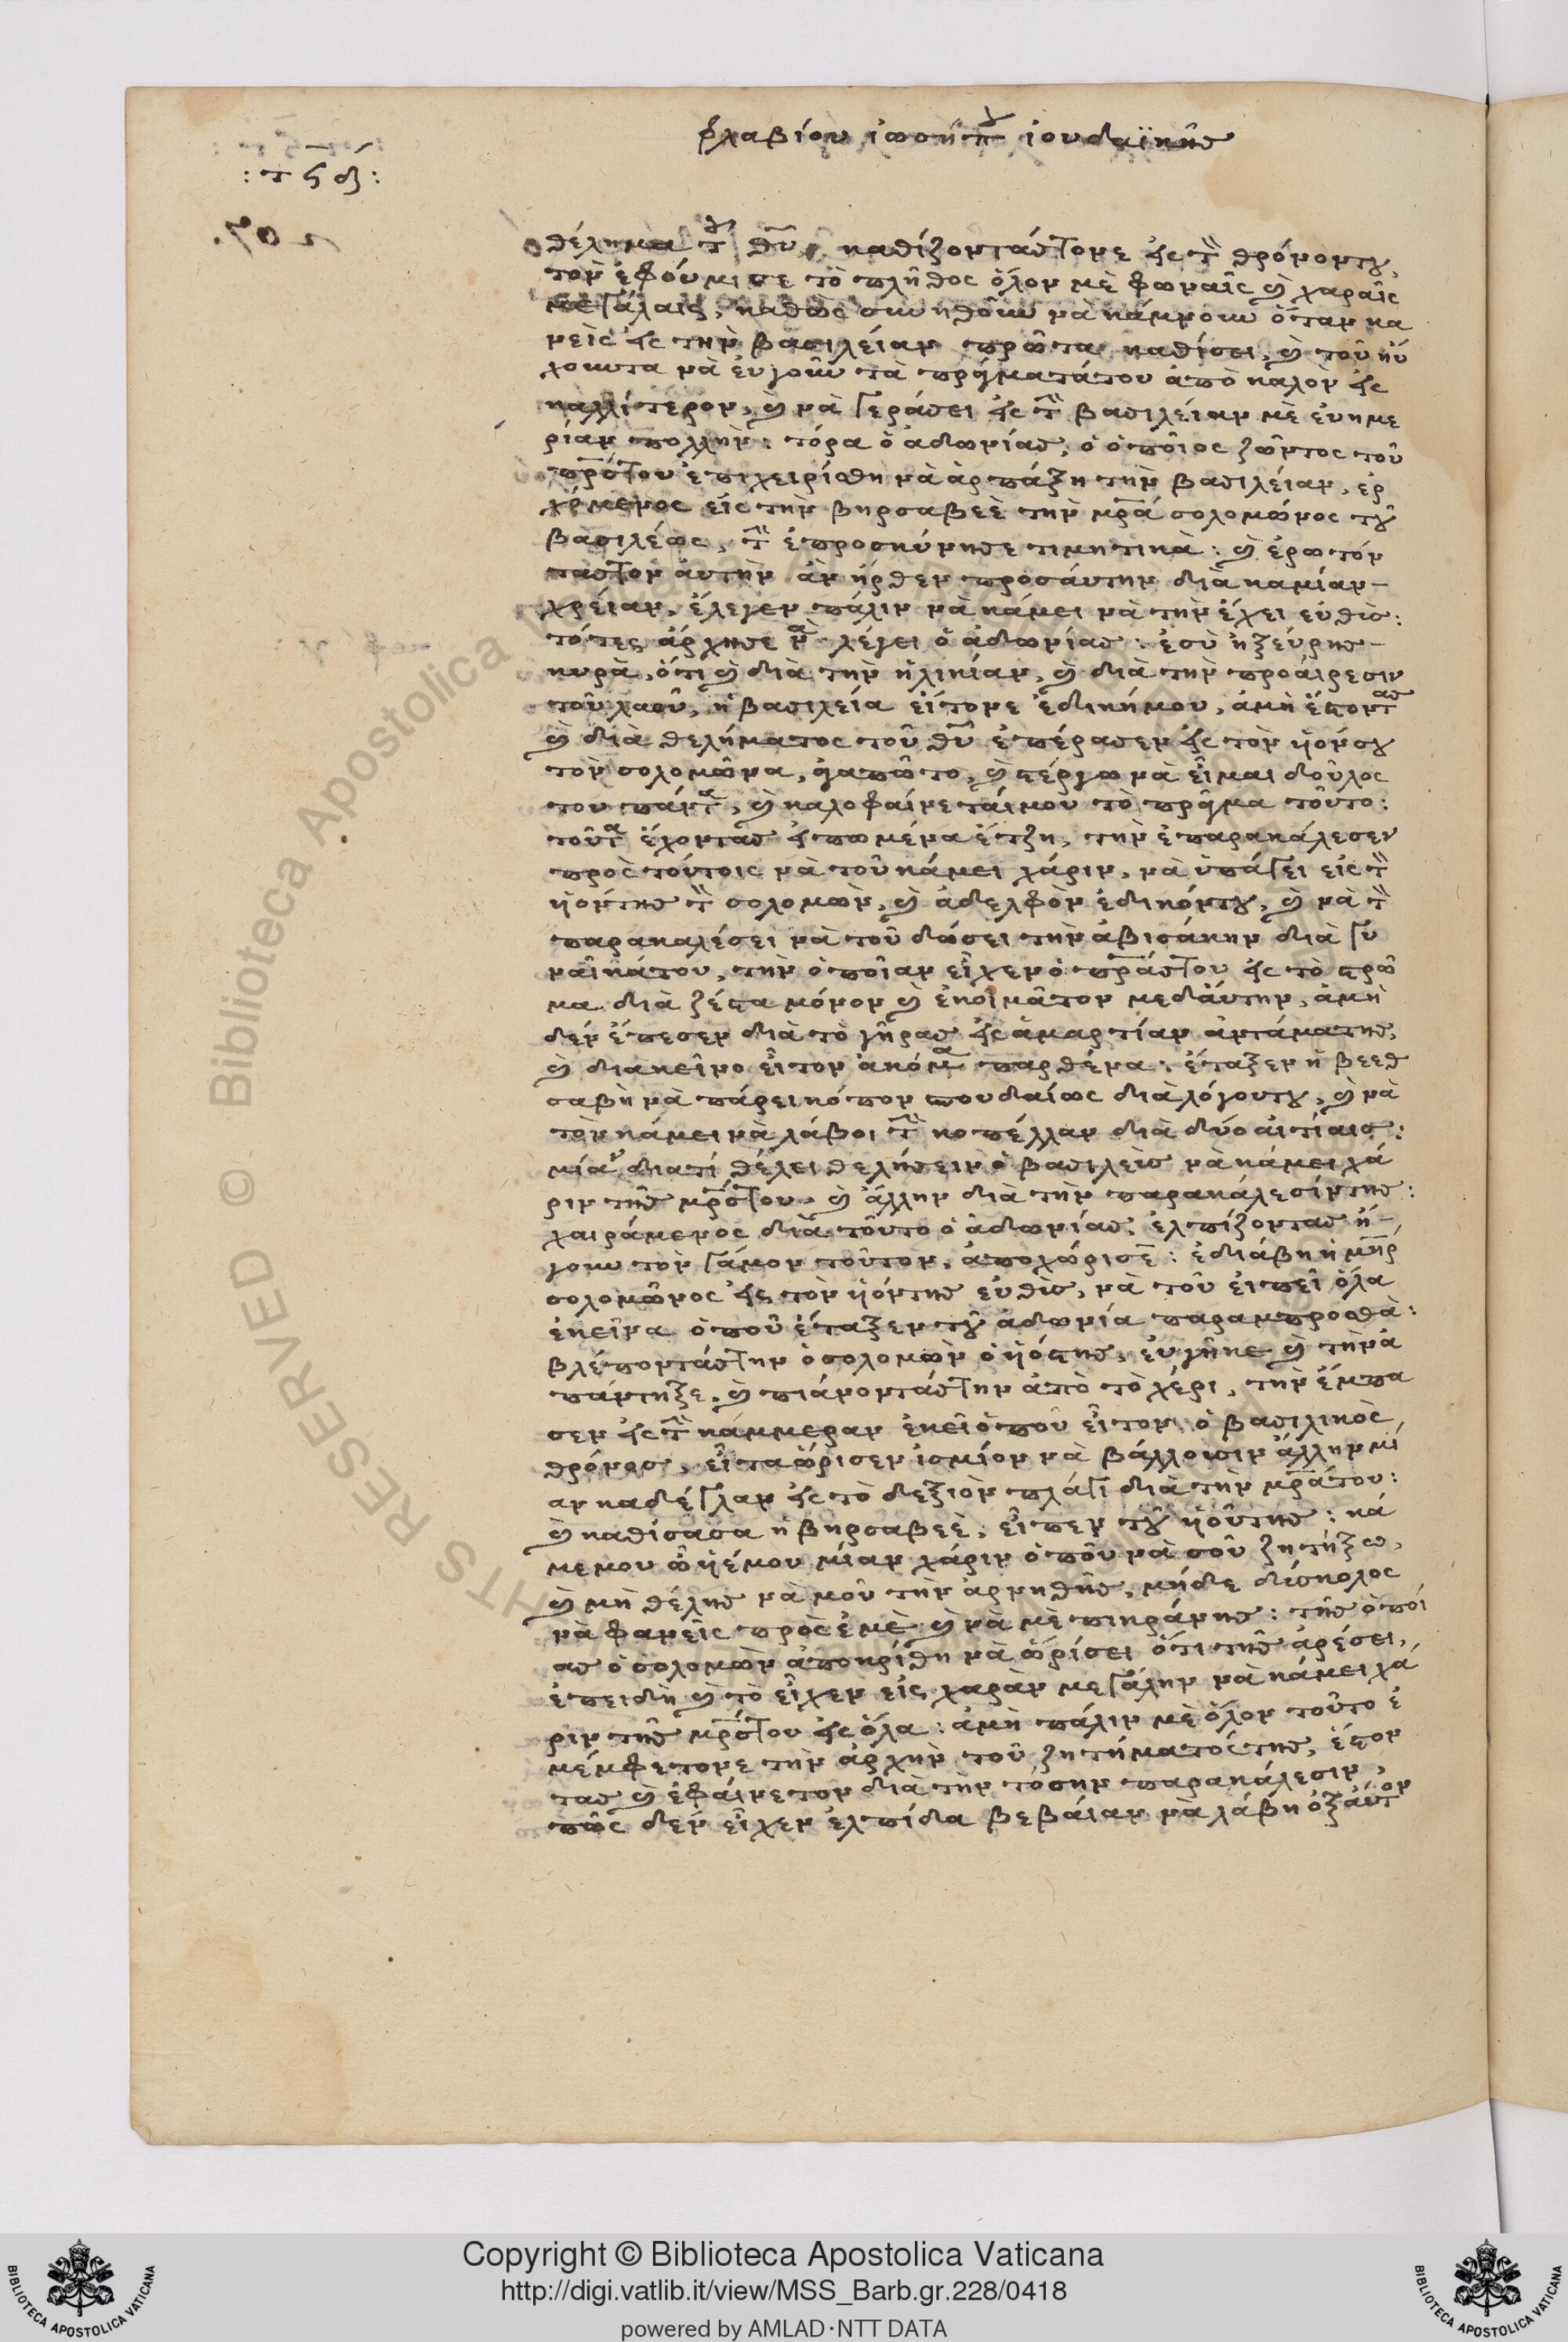 φλαβίου ἰωσήπου ἰουδαϊκῆς
: τϟδ :
θέλημα τοῦ θυ, καθίζοντάςτονε εἰς τὸν θρόνοντου,
τὸν ἐφούμισε τὸ πλῆθος ὅλον μὲ φωναῖς καὶ χαραῖς
μεγάλαις, καθὼς συνηθοῦν νὰ κάμνουν ὅταν κα
νεὶς εἰς τὴν βασιλείαν πρῶτα καθίσει, καὶ τοῦ ηὔ
χουντα νὰ εὐγοῦν τὰ πράγματάτου ἀπὸ καλὸν εἰς
καλλίτερον, καὶ νὰ γεράσει εἰς τὴν βασιλείαν μὲ εὐημε
ρίαν πολλήν: τόρα ὁ ἀδωνίας, ὁ ὁποῖος ζῶντος τοῦ
πρστου ἐπιχειρίσθη νὰ ἁρπάξη τὴν βασιλείαν, ερ
χόμενος εἰς τὴν βηρσαβεὲ τὴν μρα σολομῶνος τοῦ
βασιλέως, τὴν ἐπροσκύνησε τιμητικὰ: καὶ ἐρωτόν
ταςτον ἀυτὴν ἀν ἦρθεν προσάυτην διὰ καμίαν-
χρείαν, ἔλεγεν πάλιν νὰ κάμει νὰ τὴν ἔχει εὐθὺς:
τότες ἄρχησε νὰ λέγει ὁ ἀδωνίας: ἐσὺ ἠξεύρης-
κυρὰ, ὅτι καὶ διὰ τὴν ἡλικίαν, καὶ διὰ τὴν προαίρεσιν
τοῦ λαοῦ, ἡ βασιλεία εἴτονε ἐδικήμου, ἀμὴ ἔστοντας
καὶ διὰ θελήματος τοῦ θυ ἐπέρασεν εἰς τὸν ὑόνσου
τὸν σολομῶνα, ἀγαπῶ το, καὶ στέργω νὰ εἶμαι δοῦλος
του πάντα, καὶ καλοφαίνεταίμου τὸ πρᾶγμα τοῦτο:
τοῦτα ἔχοντας εἰπωμένα ἔτζη, τὴν ἐπαρακάλεσεν
πρὸς τούτοις νὰ τοῦ κάμει χάριν, νὰ ὑπάγει εἰς τὸν
ὑόντης τὸν σολομὼν, καὶ ἀδελφὸν ἐδικόντου, καὶ νὰ τὸν
παρακαλέσει νὰ τοῦ δώσει τὴν ἀβισάκην διὰ γυ
ναῖκάτου, τὴν ὁποῖαν εἶχεν ὁ πράςτου εἰς τὸ στρῶ
μα διὰ ζέστα μόνον καὶ ἐκοιμᾶτον μεδάυτην, ἀμὴ
δὲν ἔπεσεν διὰ τὸ γῆρας εἰς ἁμαρτίαν ἀντάματης,
καὶ διακεῖνο εἶτον ἀκόμα παρθένα: ἔταξεν ἡ βεεθ
σαβὴ νὰ πάρει κόπον σπουδαίως διὰ λόγουτου, καὶ νὰ
τὸν κάμει νὰ λάβοι τὴν κοπέλλαν διὰ δύο αἰτίαις:
μίαν διατί θέλει θελήσειν ὁ βασιλεὺς νὰ κάμει χά
ριν τῆς μρςτου, καὶ ἄλλην διὰ τὴν παρακάλεσίντης:
χαιράμενος διὰ τοῦτο ὁ ἀδωνίας, ἐλπίζοντας ἤ-
γουν τὸν γάμον τοῦτον, ἀποχώρισε: ἐδιάβη ἡ μηρ
σολομῶνος εἰς τὸν ὑόντης εὐθὺς, νὰ τοῦ εἰπεῖ ὅλα
ἐκεῖνα ὁποῦ ἔταξεν τοῦ ἀδωνία παραμπροσθὰ:
βλέποντάςτην ὁ σολομὼν ὁ ὑόςτης, εὐγῆκε καὶ τὴν ἀ
πάντηξε, καὶ πιάνοντάςτην ἀπὸ τὸ χέρι, τὴν ἔμπα
σεν εἰς τὴν κάμμεραν ἐκεῖ ὁποῦ εἶτον ὁ βασιλικὸς
θρόνος, εἶτα ὥρισεν ἰσμίον νὰ βάλλουσιν ἄλλην μί
αν καδέγλαν εἰς τὸ δεξιὸν πλάγι διὰ τὴν μρατου:
καὶ καθίσασα ἡ βηρσαβεὲ, εἶπεν τοῦ ὑοῦτης: κά
μεμου ὦ ὑέμου μίαν χάριν ὁποῦ νὰ σοῦ ζητήξω,
καὶ μὴ θέλης νὰ μοῦ τὴν ἀρνηθῆς, μήδε δύσκολος
νὰ φανεῖς πρὸς ἐμὲ καὶ νὰ μὲ πικράνης: τῆς ὁποί
ας ὁ σολομὼν ἀποκρίθη νὰ ὡρίσει ὅτι τῆς ἀρέσει,
ἐπειδὴ καὶ τὸ εἶχεν εἰς χαρὰν μεγάλην νὰ κάμει χά
ριν τῆς μρςτου εἰς ὅλα: ἀμὴ πάλιν μὲ ὅλον τοῦτο ἐ
μέμφετονε τὴν ἀρχὴν τοῦ ζητήματόςτης, ἔστον
τας καὶ ἐφαίνετον διὰ τὴν τόσην παρακάλεσιν,
πῶς δὲν εἶχεν ἐλπίδα βεβαίαν νὰ λάβη ὀξαυτὸν
Copyright © Biblioteca Apostolica Vaticana
http://digi.vatlib.it/view/MSS_Barb.gr.228/0418
powered by AMLAD·NTT DATA